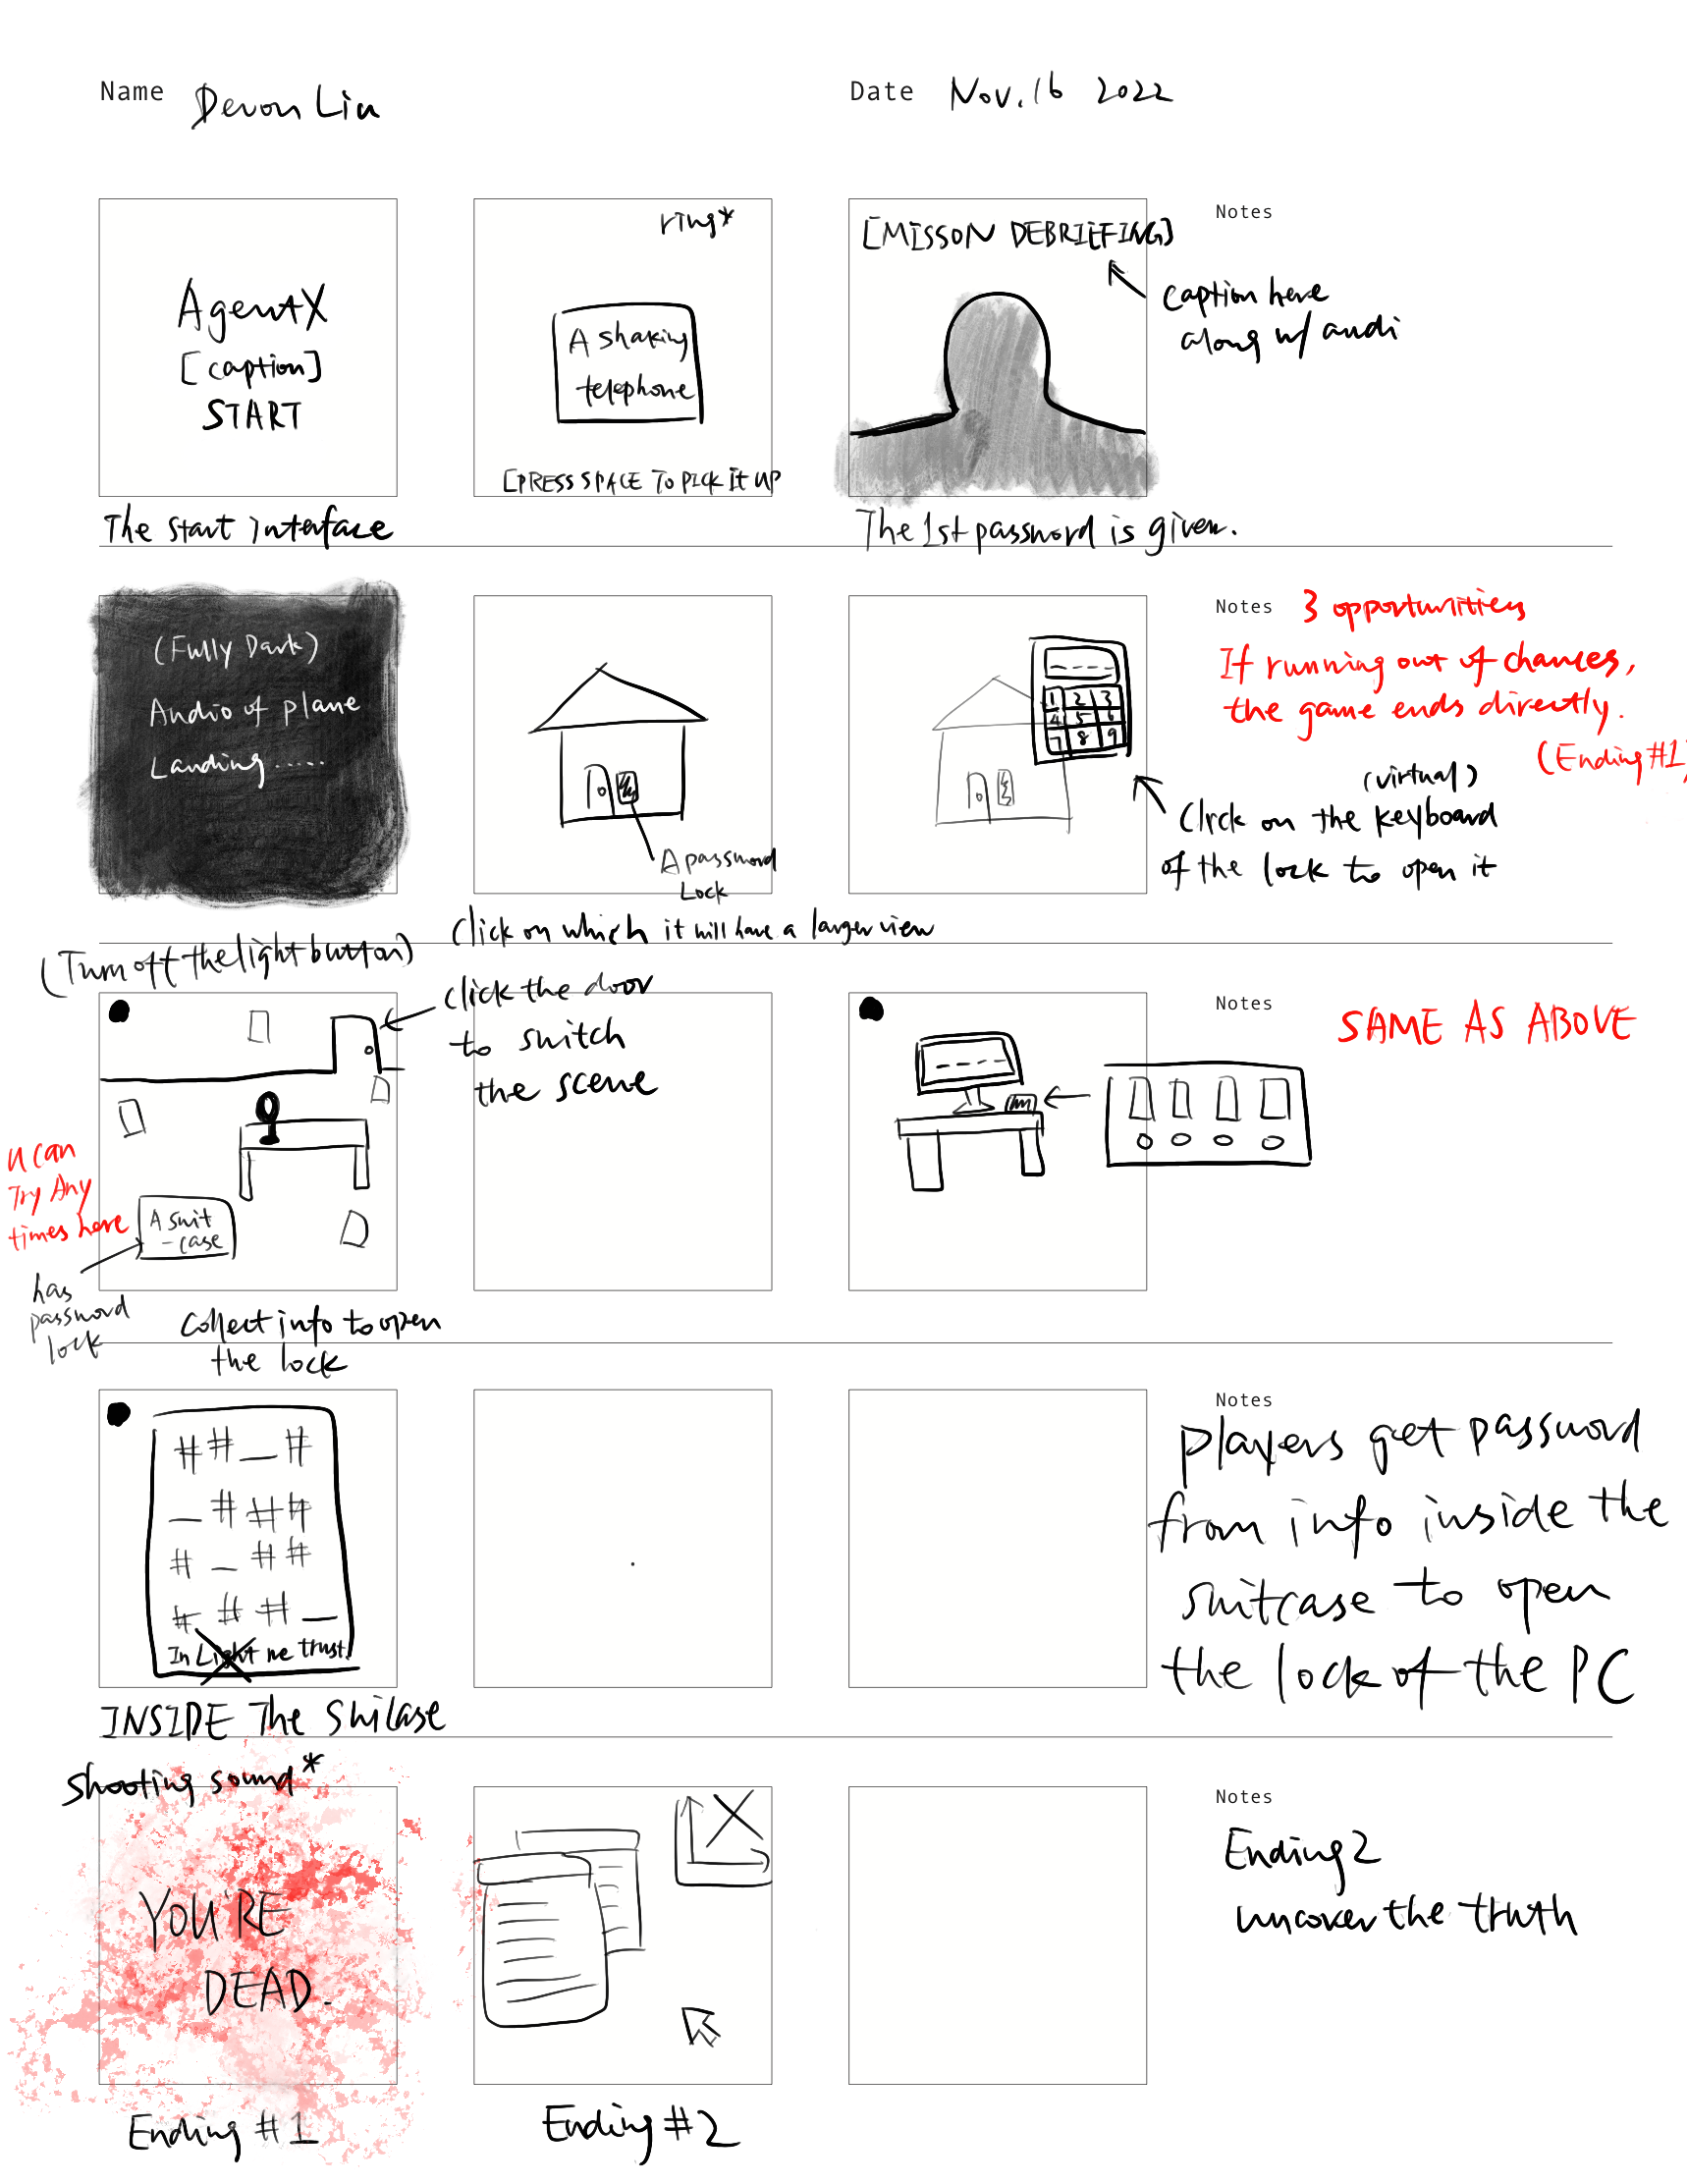 Name Devon Liu
Date Nov. 16 2022
AgentX
[caption]
START
The start interface
ring*
A shaking
telephone
[PRESS SPACE TO PICK IT UP
[MISSON DEBRIEFING]
The 1st password is given.
Notes
caption here
along w/ audi
(Fully Dark)
Audio of plane
Landing.....
A password
Lock
Click on which it will have a larger view
1 2 3
4 5 6
7 8 9
Notes 3 opportunities
If running out of chances,
the game ends directly.
(Ending #1)
(virtual)
Click on the keyboard
of the lock to open it
(Turn off the light button)
click the door
to switch
the scene
U can
Try Any
times here
A suit
-case
has
password
lock
Collect info to open
the lock
Notes
SAME AS ABOVE
# # _ #
_ # # #
# _ # #
# # # _
In Light we trust.
INSIDE The Suitcase
Notes
players get password
from info inside the
suitcase to open
the lock of the PC
Shooting sound*
YOU'RE
DEAD.
Ending #1
Ending #2
Notes
Ending 2
uncover the truth